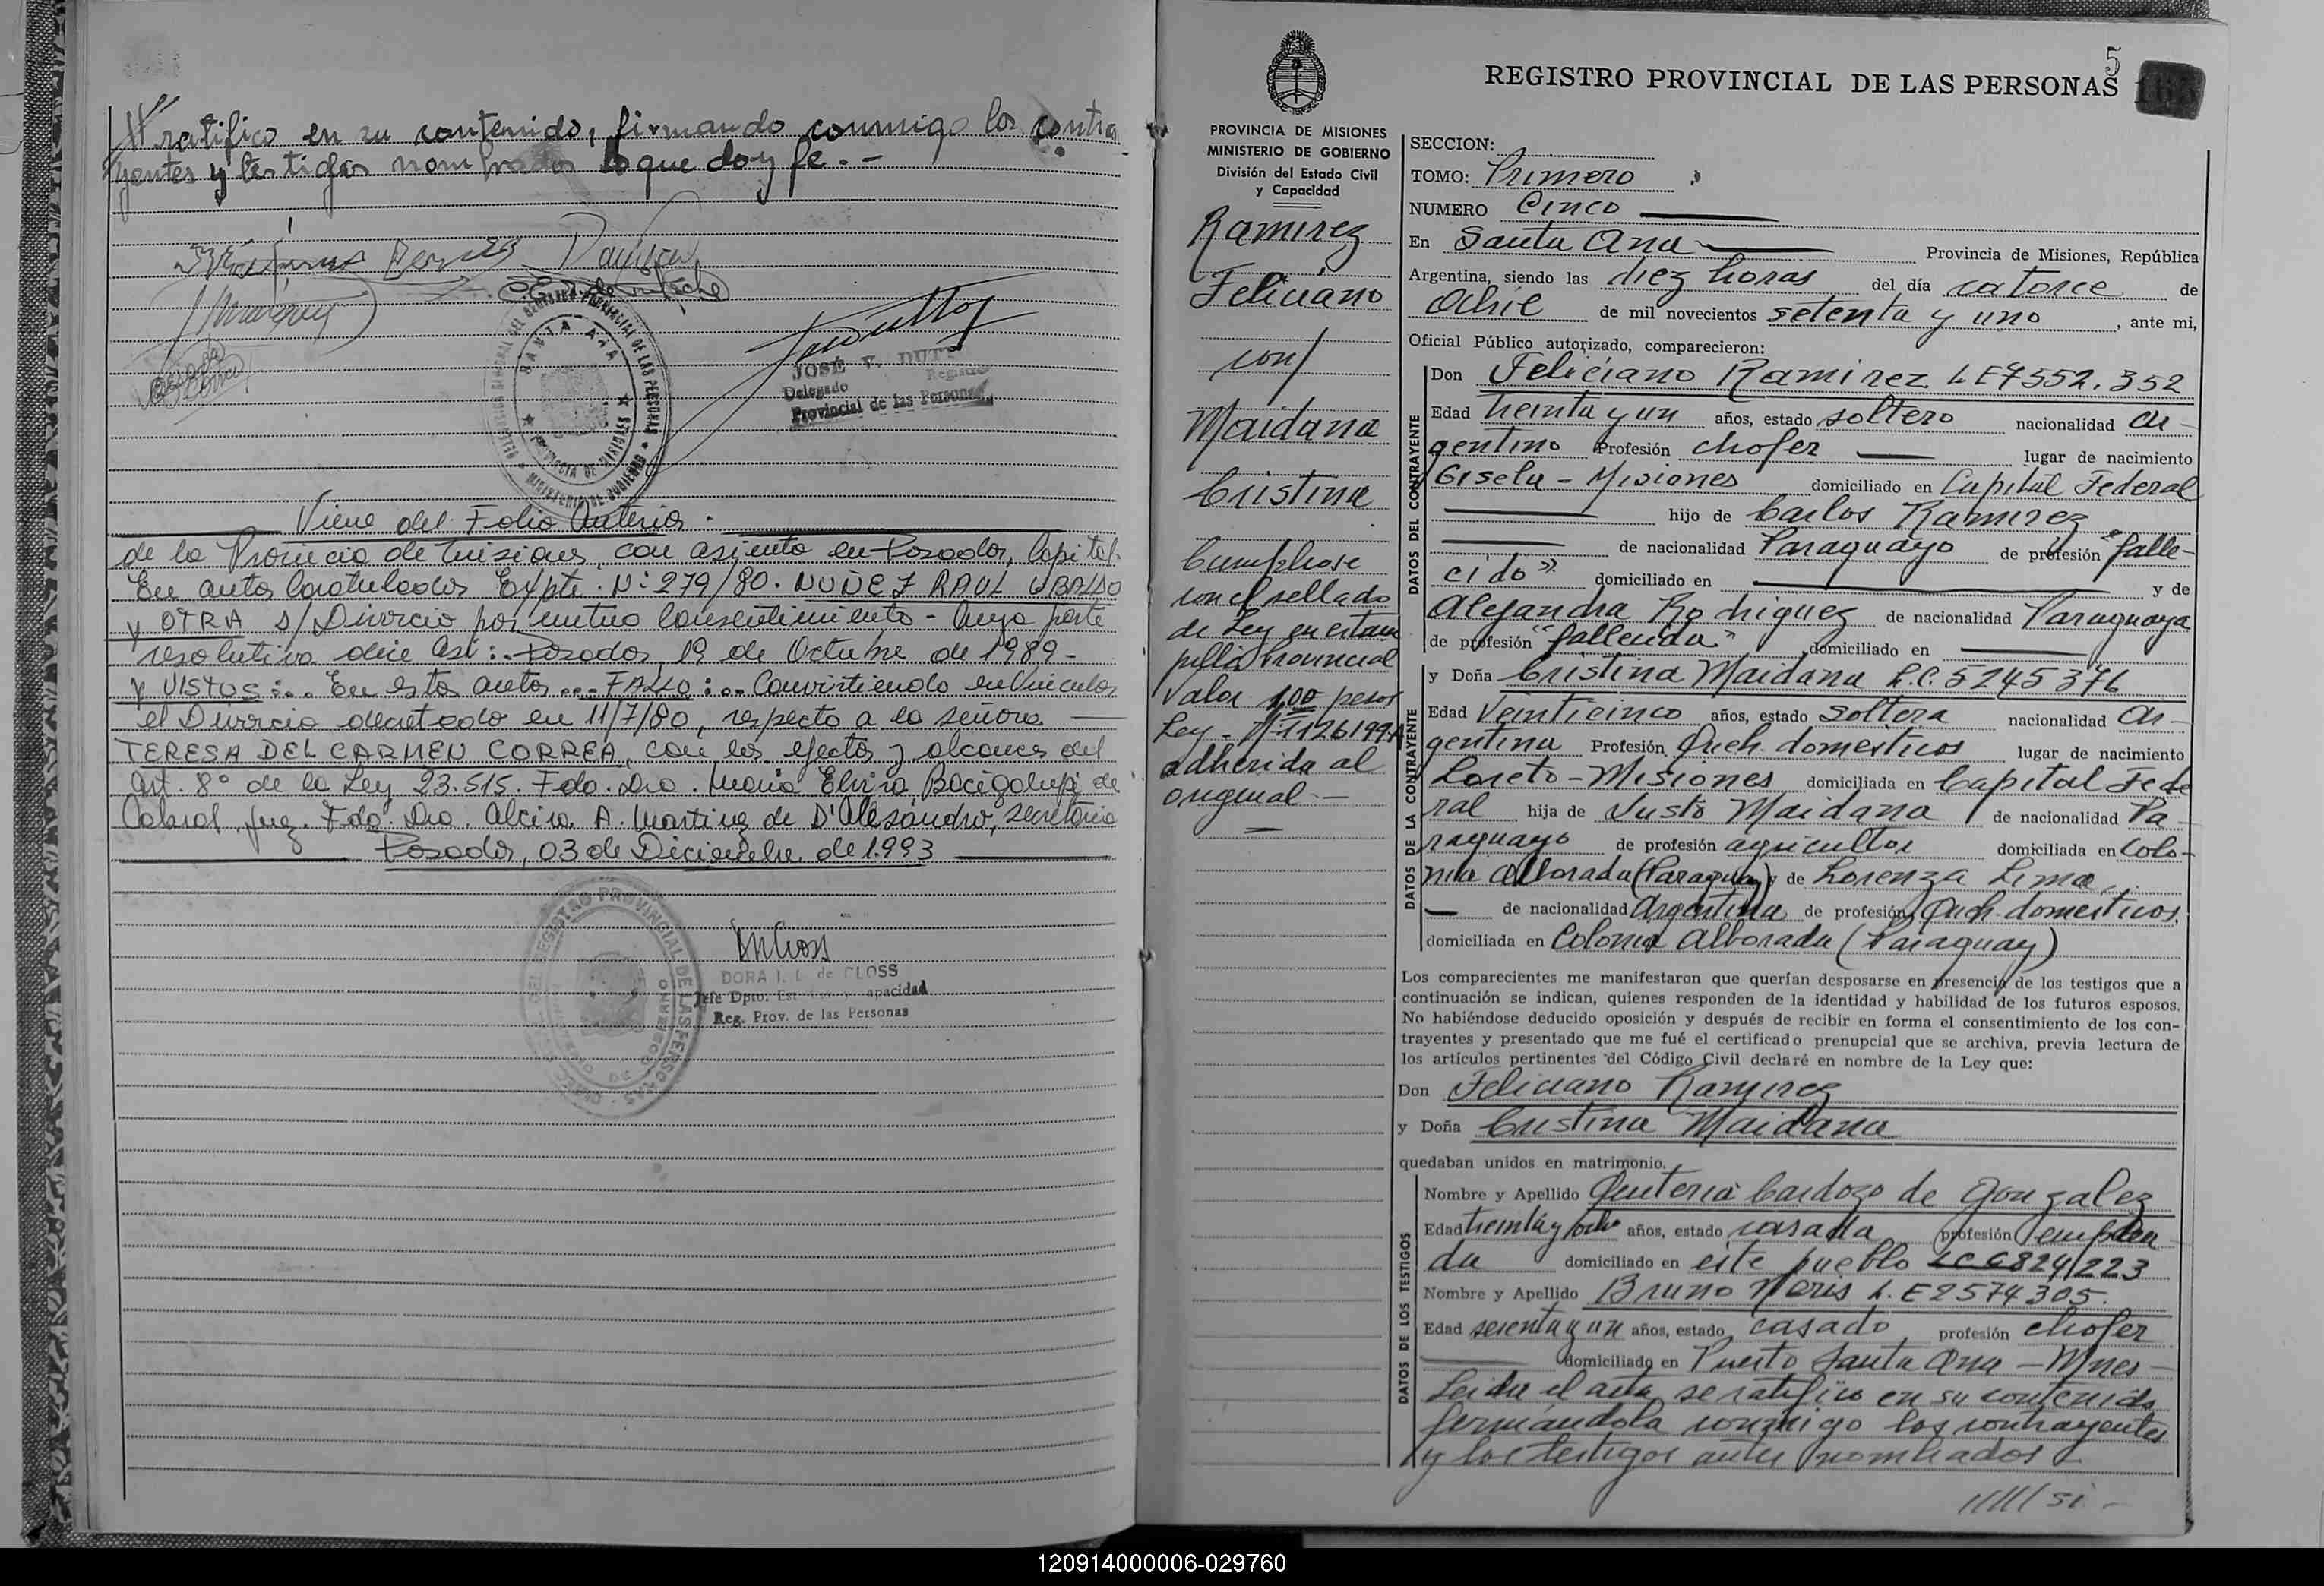 ratifico en su contenido, firmando conmigo los contra
yentes y testigos nombrados lo que doy fe.-
SANTA ANA
JOSÉ V. DUTTO
Delegado Registro
Provincial de las Personas
Viene del Folio Anterior.
de la Provincia de Misiones, con asiento en Posadas, Capital.
En autos Caratulados Expte. Nº 279/80. NUÑEZ RAUL UBALDO
y OTRA s/ Divorcio por mutuo Consentimiento - cuya parte
resolutiva dice así: Posadas, 19 de Octubre de 1989-
y VISTOS:.. En estos autos ... FALLO:.. Convirtiendo en Vincular
el Divorcio decretado en 11/7/80, respecto a la señora
TERESA DEL CARMEN CORREA, con los efectos y alcances del
art. 8º de la Ley 23.515. Fdo. Dra. María Elvira Bacigalupi de
Cabral, Juez. Fdo. Dra. Alcira A. Martinez de D'Alesandro, Secretaria
Posadas, 03 de Diciembre de 1.993
DORA I. L. de CLOSS
Jefe Dpto. Est. Capacidad
Reg. Prov. de las Personas
5
REGISTRO PROVINCIAL DE LAS PERSONAS
PROVINCIA DE MISIONES
MINISTERIO DE GOBIERNO
División del Estado Civil
y Capacidad
Ramirez
Feliciano
con
Maidana
Cristina
Cumpliose
con el sellado
de Ley en estam
pilla Provincial
Valor 1,00 pesos
Ley - Nº 1126199A
adherida al
original -
SECCION:
TOMO: Primero
NUMERO Cinco
En Santa Ana Provincia de Misiones, República
Argentina, siendo las diez horas del día catorce de
Abril de mil novecientos setenta y uno, ante mi,
Oficial Público autorizado, comparecieron:
DATOS DEL CONTRAYENTE
Don Feliciano Ramirez L E 7552.352
Edad treinta y un años, estado soltero nacionalidad ar-
gentino Profesión chofer lugar de nacimiento
Gisela - Misiones domiciliado en Capital Federal
hijo de Carlos Ramirez
de nacionalidad Paraguayo de profesión "falle-
cido" domiciliado en y de
Alejandra Rodriguez de nacionalidad Paraguaya
de profesión "fallecida" domiciliado en
DATOS DE LA CONTRAYENTE
y Doña Cristina Maidana L.C. 5245376
Edad Veinticinco años, estado soltera nacionalidad ar-
gentina Profesión Queh. domesticos lugar de nacimiento
Loreto - Misiones domiciliada en Capital Fede
ral hija de Justo Maidana de nacionalidad Pa-
raguayo de profesión agricultor domiciliada en Colo-
nia Alborada (Paraguay) y de Lorenza Lima
de nacionalidad Argentina de profesión Queh. domesticos
domiciliada en Colonia Alborada (Paraguay)
Los comparecientes me manifestaron que querían desposarse en presencia de los testigos que a
continuación se indican, quienes responden de la identidad y habilidad de los futuros esposos.
No habiéndose deducido oposición y después de recibir en forma el consentimiento de los con-
trayentes y presentado que me fué el certificado prenupcial que se archiva, previa lectura de
los artículos pertinentes del Código Civil declaré en nombre de la Ley que:
Don Feliciano Ramirez
y Doña Cristina Maidana
quedaban unidos en matrimonio.
DATOS DE LOS TESTIGOS
Nombre y Apellido Quiteria Cardozo de Gonzalez
Edad treinta y ocho años, estado casada profesión emplea
da domiciliado en este pueblo LC 6824223
Nombre y Apellido Bruno Neris L. E 2574305.
Edad sesenta y un años, estado casado, profesión chofer
domiciliado en Puerto Santa Ana - Mnes -
Leida el acta se ratifico en su contenido
firmándola conmigo los contrayentes
y los testigos antes nombrados
///// si -
120914000006-029760